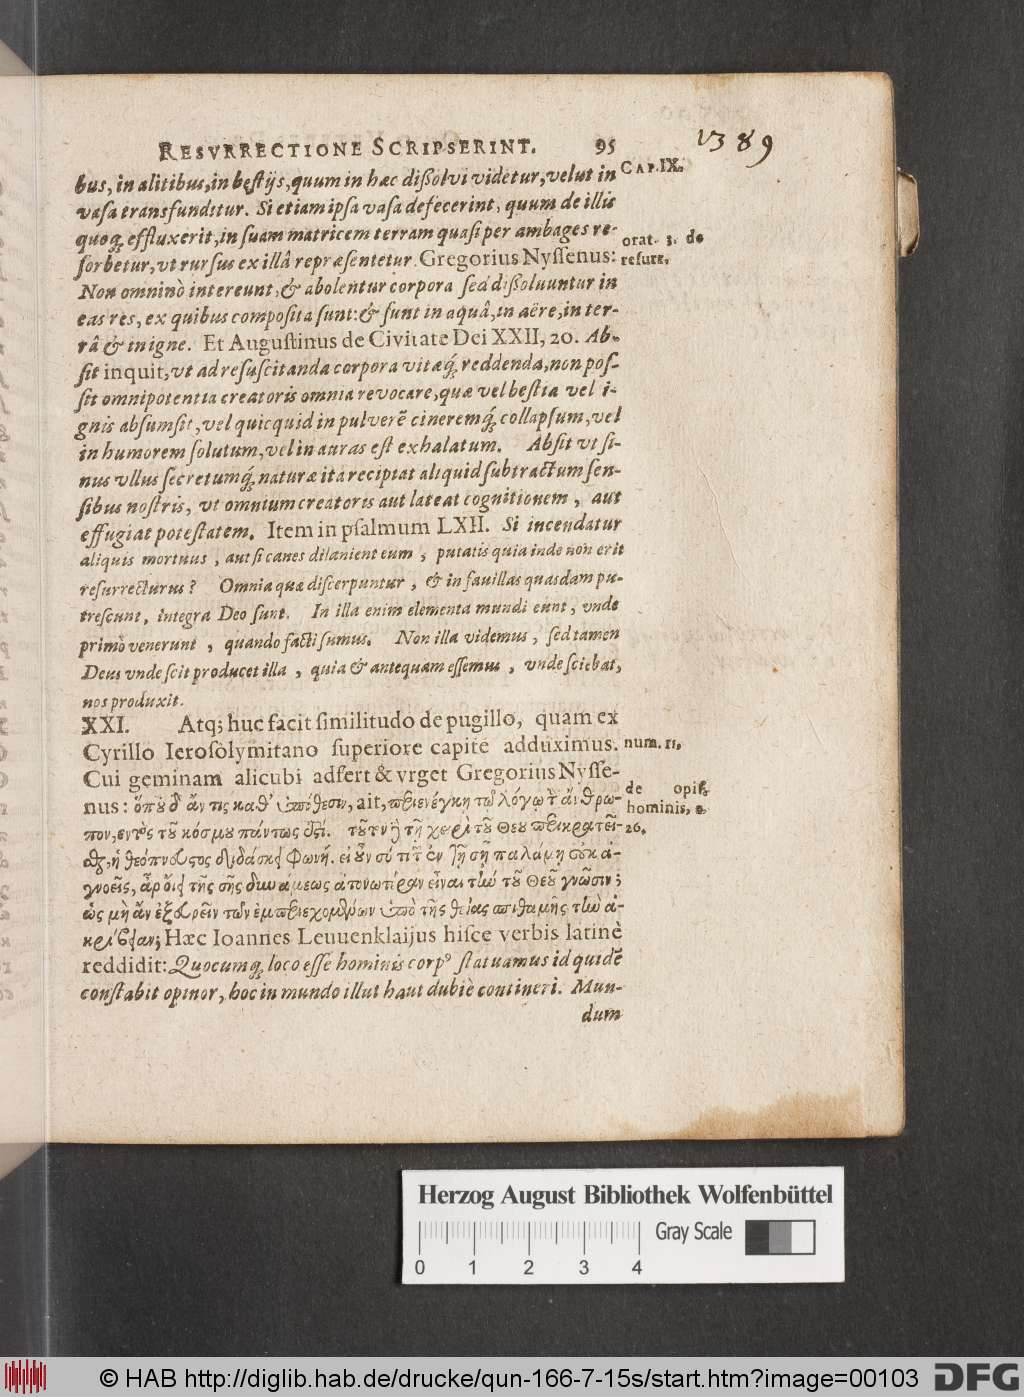 RESVRRECTIONE SCRIPSERINT. 95
1389
CAP. IX.
bus, in alitibus, in bestijs, quum in hæc dißolvi videtur, velut in
vasa transfunditur. Si etiam ipsa vasa defecerint, quum de illis
quoq; effluxerit, in suam matricem terram quasi per ambages re-
sorbetur, ut rursus ex illâ repræsentetur. Gregorius Nyssenus:
orat. 3. de
resurr.
Non omninò intereunt, & abolentur corpora sed dißoluuntur in
eas res, ex quibus composita sunt: & sunt in aquâ, in aëre, in ter-
râ & in igne. Et Augustinus de Civitate Dei XXII, 20. Ab-
sit inquit, vt ad resuscitanda corpora vitæq́; reddenda, non pos-
sit omnipotentia creatoris omnia revocare, quæ vel bestia vel i-
gnis absumsit, vel quicquid in pulverē cineremq́; collapsum, vel
in humorem solutum, vel in auras est exhalatum. Absit vt si-
nus vllus secretumq́; naturæ ita recipiat aliquid subtractum sen-
sibus nostris, vt omnium creatoris aut lateat cognitionem, aut
effugiat potestatem. Item in psalmum LXII. Si incendatur
aliquis mortuus, aut si canes dilanient eum, putatis quia inde non erit
resurrecturus? Omnia quæ discerpuntur, & in fauillas quasdam pu-
trescunt, integra Deo sunt. In illa enim elementa mundi eunt, vnde
primò venerunt, quando facti sumus. Non illa videmus, sed tamen
Deus vnde scit producet illa, quia & antequam essemus, vnde sciebat,
nos produxit.
XXI. Atq; huc facit similitudo de pugillo, quam ex
Cyrillo Ierosolymitano superiore capite adduximus.
num. 11.
Cui geminam alicubi adfert & vrget Gregorius Nysse-
nus: ὅπου δ' ἄν τις καθ' ὑπόθεσιν, ait, περιενέγκῃ τῷ λόγῳ τ̀ ἄνθρω-
de opif.
hominis, c.
26.
πον, ἐντὸς τοῦ κόσμου πάντως ἐστί. τοῦτον ἢ τῇ χειρὶ τοῦ Θεοῦ περικρατεῖ-
σθαι, ἡ θεόπνευστος διδάσκει φωνή. εἰ οὖν σύ τι τ̀ ἐν τῇ σῇ παλάμῃ οὐκ ἀ-
γνοεῖς, ἆρ' οἴει τῆς σῆς δυνάμεως ἀτονωτέραν εἶναι τὴν τοῦ Θεοῦ γνῶσιν;
ὡς μὴ ἂν ἐξευρεῖν τῶν ἐμπεριεχομένων ὑπὸ τῆς θείας σπιθαμῆς τὴν ἀ-
κρίβειαν; Hæc Ioannes Leuuenklaijus hisce verbis latinè
reddidit: Quocumq; loco esse hominis corpꝰ statuamus id quidē
constabit opinor, hoc in mundo illut haut dubiè contineri. Mun-
dum
Herzog August Bibliothek Wolfenbüttel
Gray Scale
0 1 2 3 4
© HAB http://diglib.hab.de/drucke/qun-166-7-15s/start.htm?image=00103
DFG